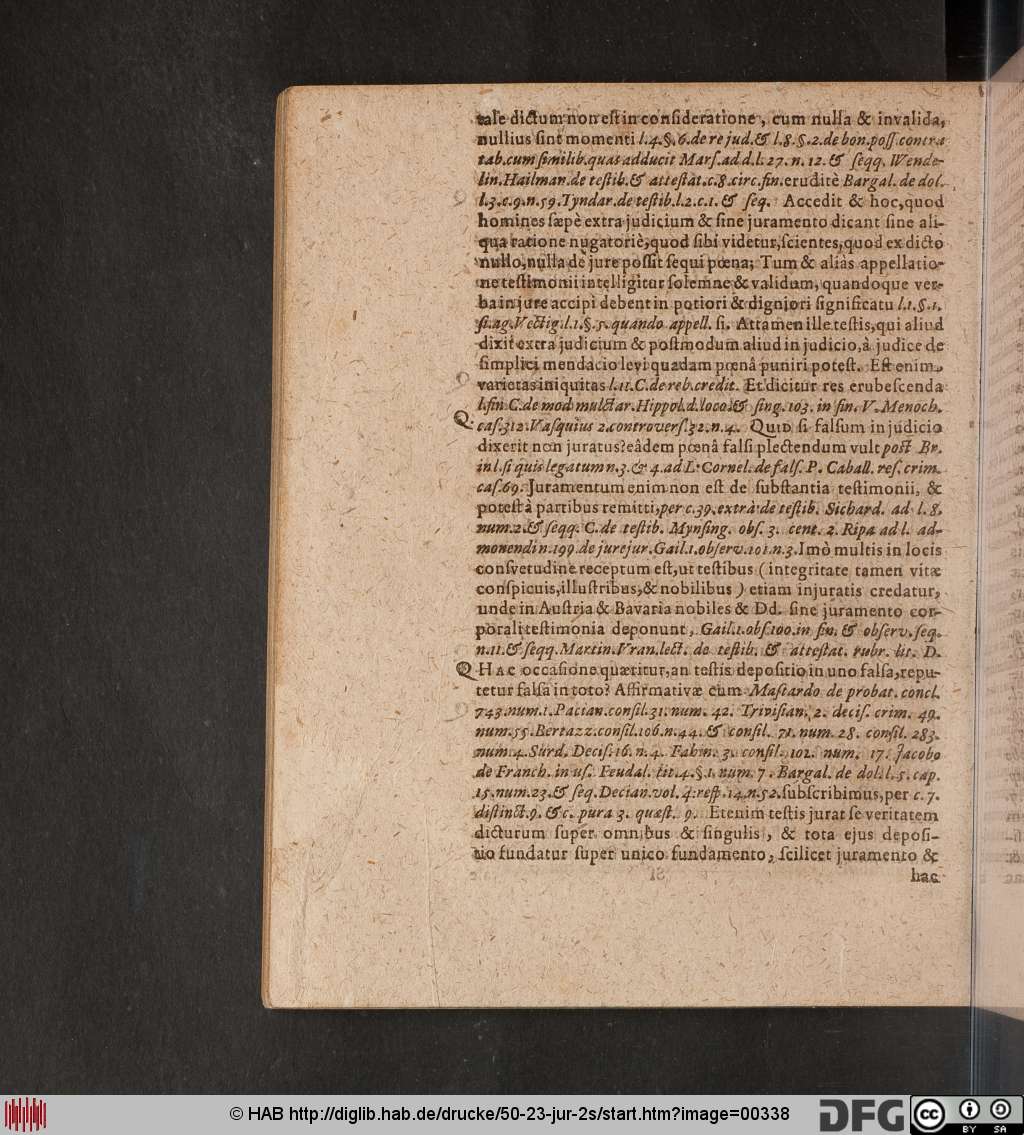 tale dictum non est in consideratione, cum nulla & invalida,
nullius sint momenti l.4.§.6.de re jud.& l.8.§.2.de bon.poss.contra
tab.cum similib.quas adducit Mars.ad d.l.27.n.12.& seqq. Wende-
lin.Hailman.de testib.& attestat.c.8.circ.fin.eruditè Bargal. de dol.
l.3.c.9.n.59.Tyndar.de testib.l.2.c.1.& seq. Accedit & hoc,quod
homines sæpè extra judicium & sine juramento dicant sine ali-
qua ratione nugatoriè,quod sibi videtur,scientes,quod ex dicto
nullo,nulla de jure possit sequi pœna; Tum & aliàs appellatio-
ne testimonii intelligitur solemne & validum, quandoque ver-
ba in jure accipi debent in potiori & digniori significatu l.1.§.1.
si.ag.Vectig.l.1.§.5.quando appell. si. Attamen ille testis,qui aliud
dixit extra judicium & postmodum aliud in judicio,à judice de
simplici mendacio levi quadam pœnâ puniri potest. Est enim
varietas iniquitas l.11.C.de reb.credit. Et dicitur res erubescenda
l.fin C.de mod.mulctar.Hippol.d.loco.& sing.103. in fin. V. Menoch.
Q: cas.312.Vasquius 2.controvers.32.n.4. QUID si falsum in judicio
dixerit non juratus?eâdem pœnâ falsi plectendum vult post Br.
in l.si quis legatum n.3.& 4.ad L: Cornel. de fals. P. Caball. res. crim.
cas.69. Juramentum enim non est de substantia testimonii, &
potest à partibus remitti,per c.39.extrà de testib. Sichard. ad l.8.
num.2.& seqq. C. de testib. Mynsing. obs. 3. cent. 2. Ripa ad l. ad-
monendi n.199.de jurejur.Gail.1.observ.101.n.3.Imò multis in locis
consvetudine receptum est,ut testibus (integritate tamen vitæ
conspicuis,illustribus,& nobilibus) etiam injuratis credatur,
unde in Austria & Bavaria nobiles & Dd. sine juramento cor-
porali testimonia deponunt, Gail.1.obs.100.in fin. & observ.seq.
n.11.& seqq. Martin.Vran.lect. de testib. & attestat. rubr. lit. D.
Q HAC occasione quæritur,an testis depositio in uno falsa,repu-
tetur falsa in toto? Affirmativæ cum Mascardo de probat. concl.
743.num.1.Pacian.consil.31.num. 42. Trivisian. 2. decis. crim. 49.
num.55.Bertazz.consil.106.n.44.& consil. 71.num. 28. consil. 283.
num.4.Surd. Decis.16. n.4. Fabin. 3. consil. 102. num. 17. Jacobo
de Franch. in us. Feudal. tit.4.§.1.num. 7. Bargal. de dol. l.5. cap.
15.num.23.& seq.Decian.vol. 4.resp.14.n.52.subscribimus,per c.7.
distinct.9. & c. pura 3. quæst. 9. Etenim testis jurat se veritatem
dicturum super omnibus & singulis, & tota ejus deposi-
tio fundatur super unico fundamento, scilicet juramento &
hac
© HAB http://diglib.hab.de/drucke/50-23-jur-2s/start.htm?image=00338
DFG
cc BY SA